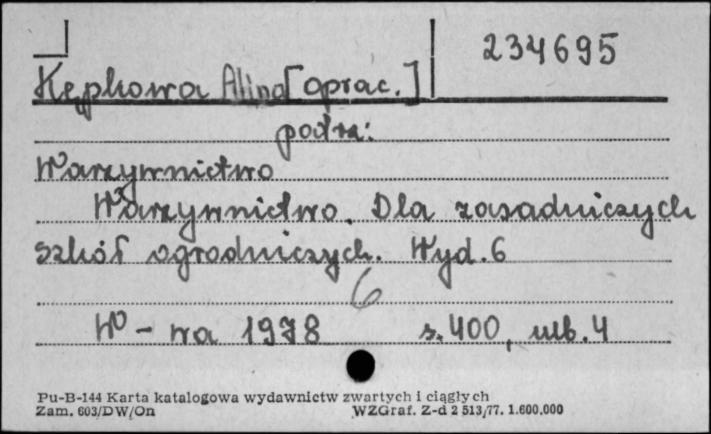 234695
Kępkowa Alina [oprac.]
patrz:
Warzywnictwo
Warzywnictwo. Dla zasadniczych
szkół ogrodniczych. Wyd. 6
6
W-wa 1978 s. 400, nlb. 4
Pu-B-144 Karta katalogowa wydawnictw zwartych i ciągłych
Zam. 603/DW/On WZGraf. Z-d 2 513/77. 1.600.000